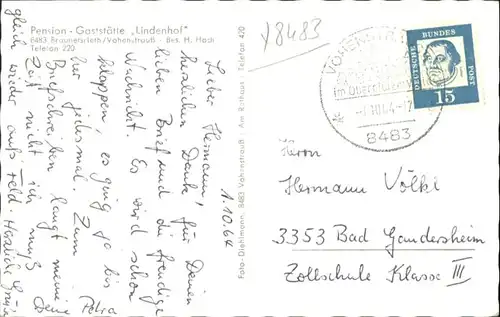 Pension - Gaststätte „Lindenhof"
8483 Braunetsrieth/Vohenstrauß - Bes. H. Hach
Telefon 220
1.10.64
Lieber Hermann!
Herzlichen Dank für Deinen
lieben Brief und die freudige
Nachricht. Es wird schon
klappen, es ging ja bis
her jedesmal. Zum
Briefschreiben langt meine
Zeit nicht ich muß
gleich wieder aufs Feld. Herzliche Grüße
Deine Petra
Foto-Diehlmann, 8483 Vohenstrauß - Am Rathaus - Telefon 420
8483
VOHENSTR
im Oberpfälzer
8483
DEUTSCHE
BUNDES
POST
15
Herrn
Hermann Völkl
3353 Bad Gandersheim
Zollschule Klasse III